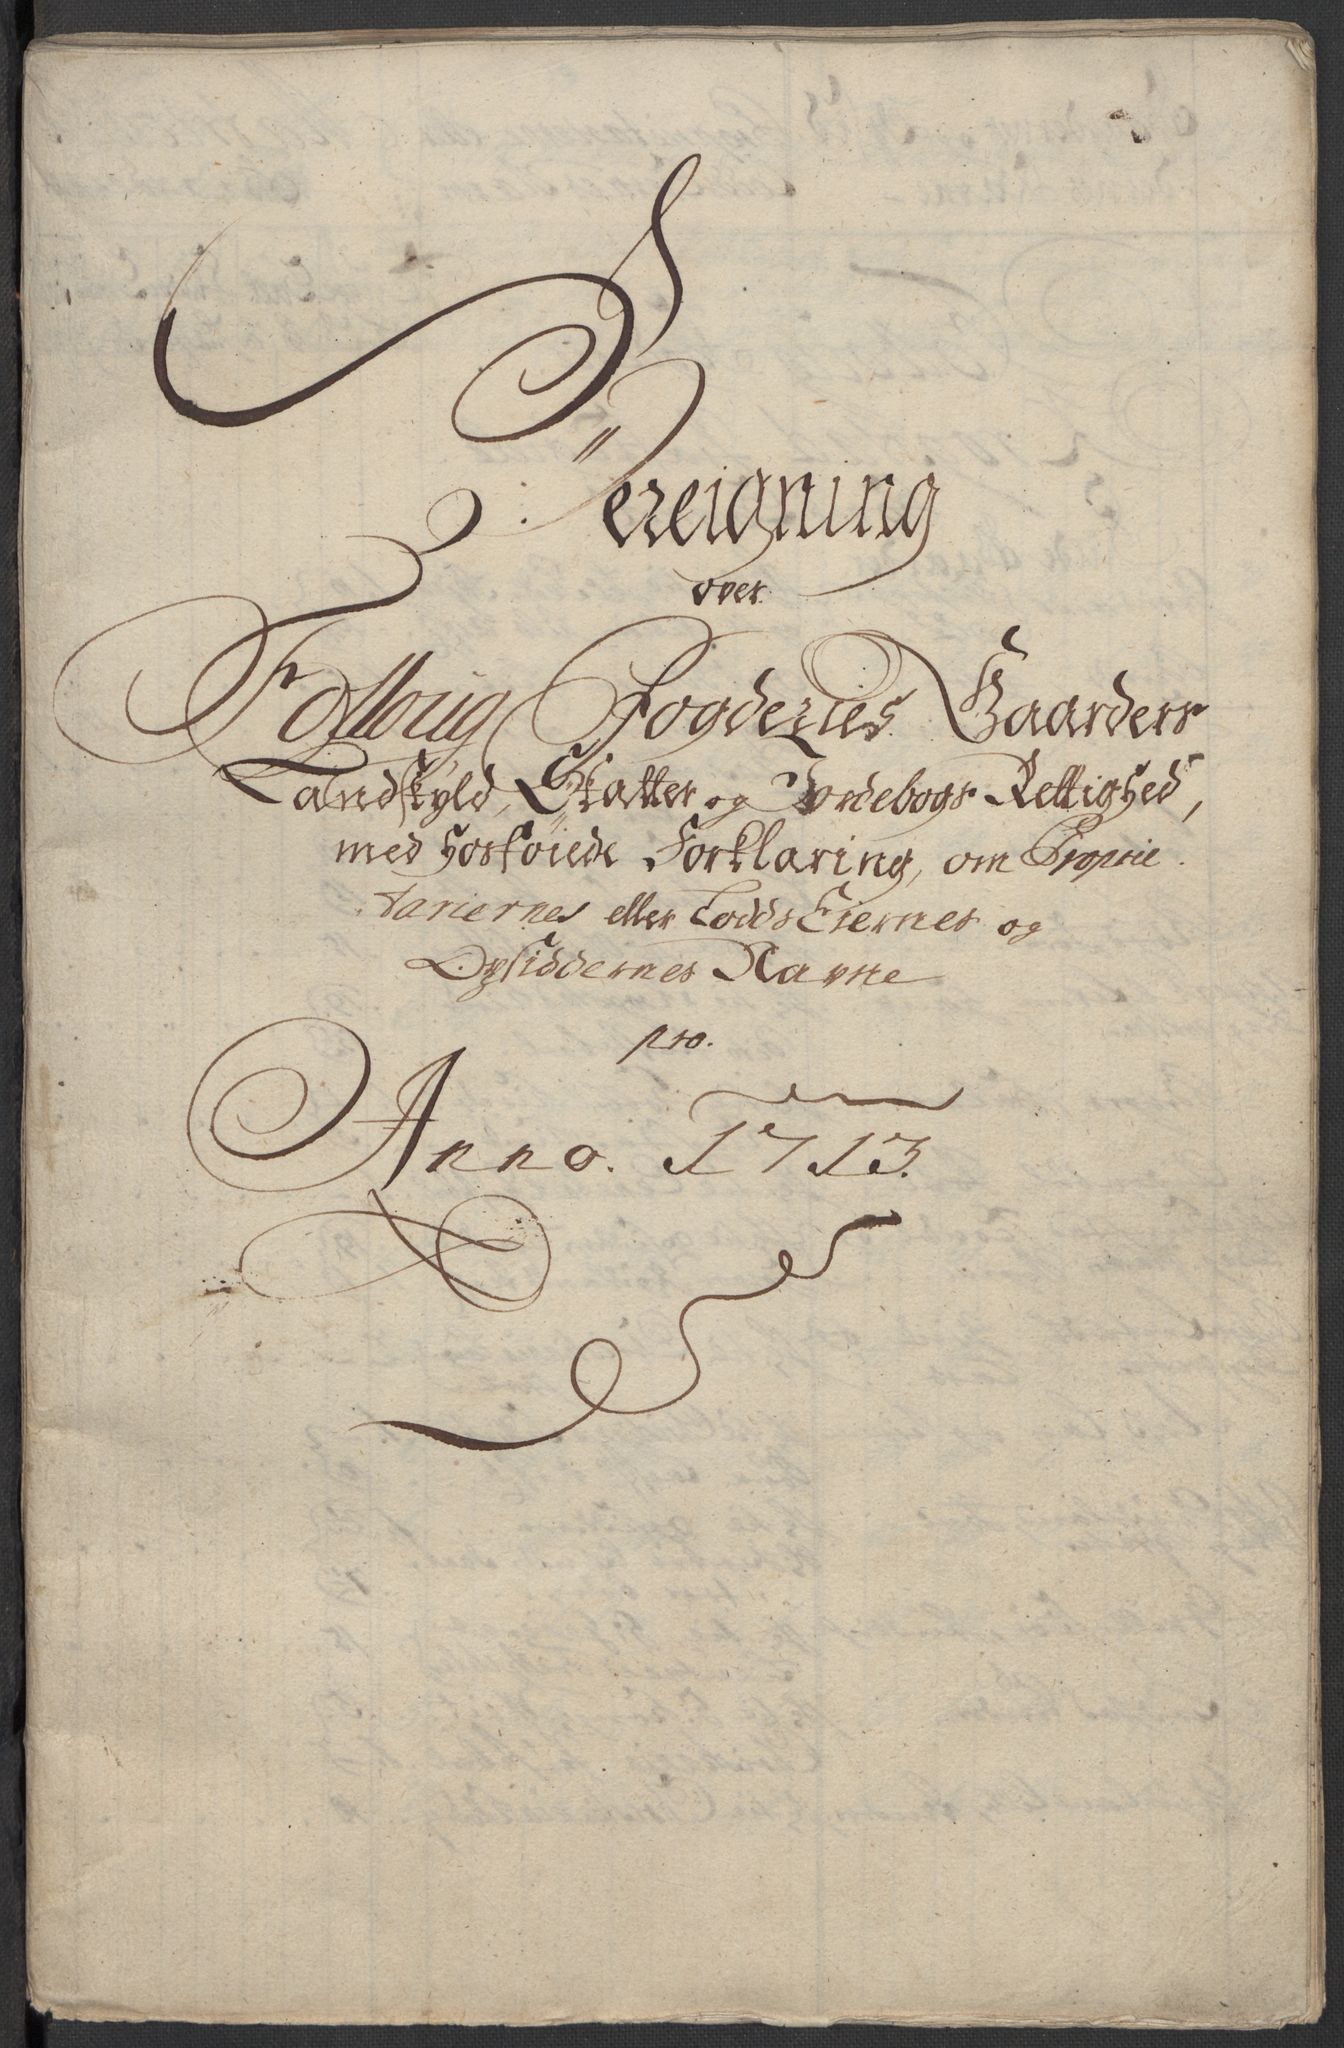 Bereigning
over
Folloug Fogderies Gaarders
Landskyld, Skatter og Jordebogs Rettighed,
med hosføiede Forklaring, om Proprie
tariernes eller Lodds Eiernes og
Opsiddernes Navne
pro.
Anno. 1713.